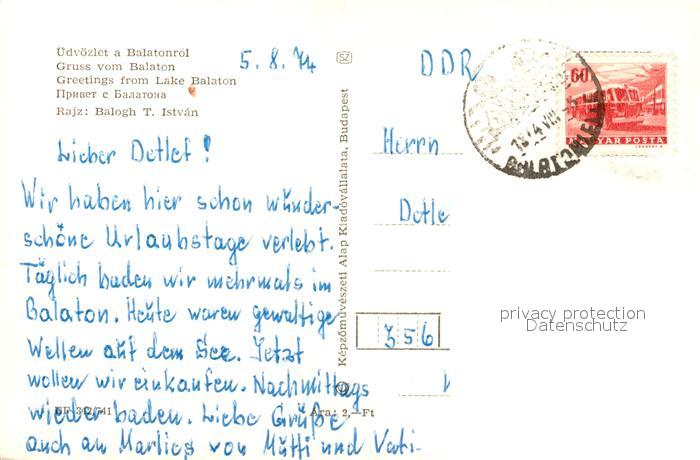 Üdvözlet a Balatonról
Gruss vom Balaton
Greetings from Lake Balaton
Привет с Балатона
Rajz: Balogh T. István
5.8.74
Lieber Detlef!
Wir haben hier schon wunder-
schöne Urlaubstage verlebt.
Täglich baden wir mehrmals im
Balaton. Heute waren gewaltige
Wellen auf dem See. Jetzt
wollen wir einkaufen. Nachmittags
wieder baden. Liebe Grüße
auch an Marlies von Mutti und Vati.
Ára: 2,—Ft
SZ
Képzőművészeti Alap Kiadóvállalata, Budapest
DDR
Herrn
Detle
356
60
MAGYAR POSTA
privacy protection
Datenschutz